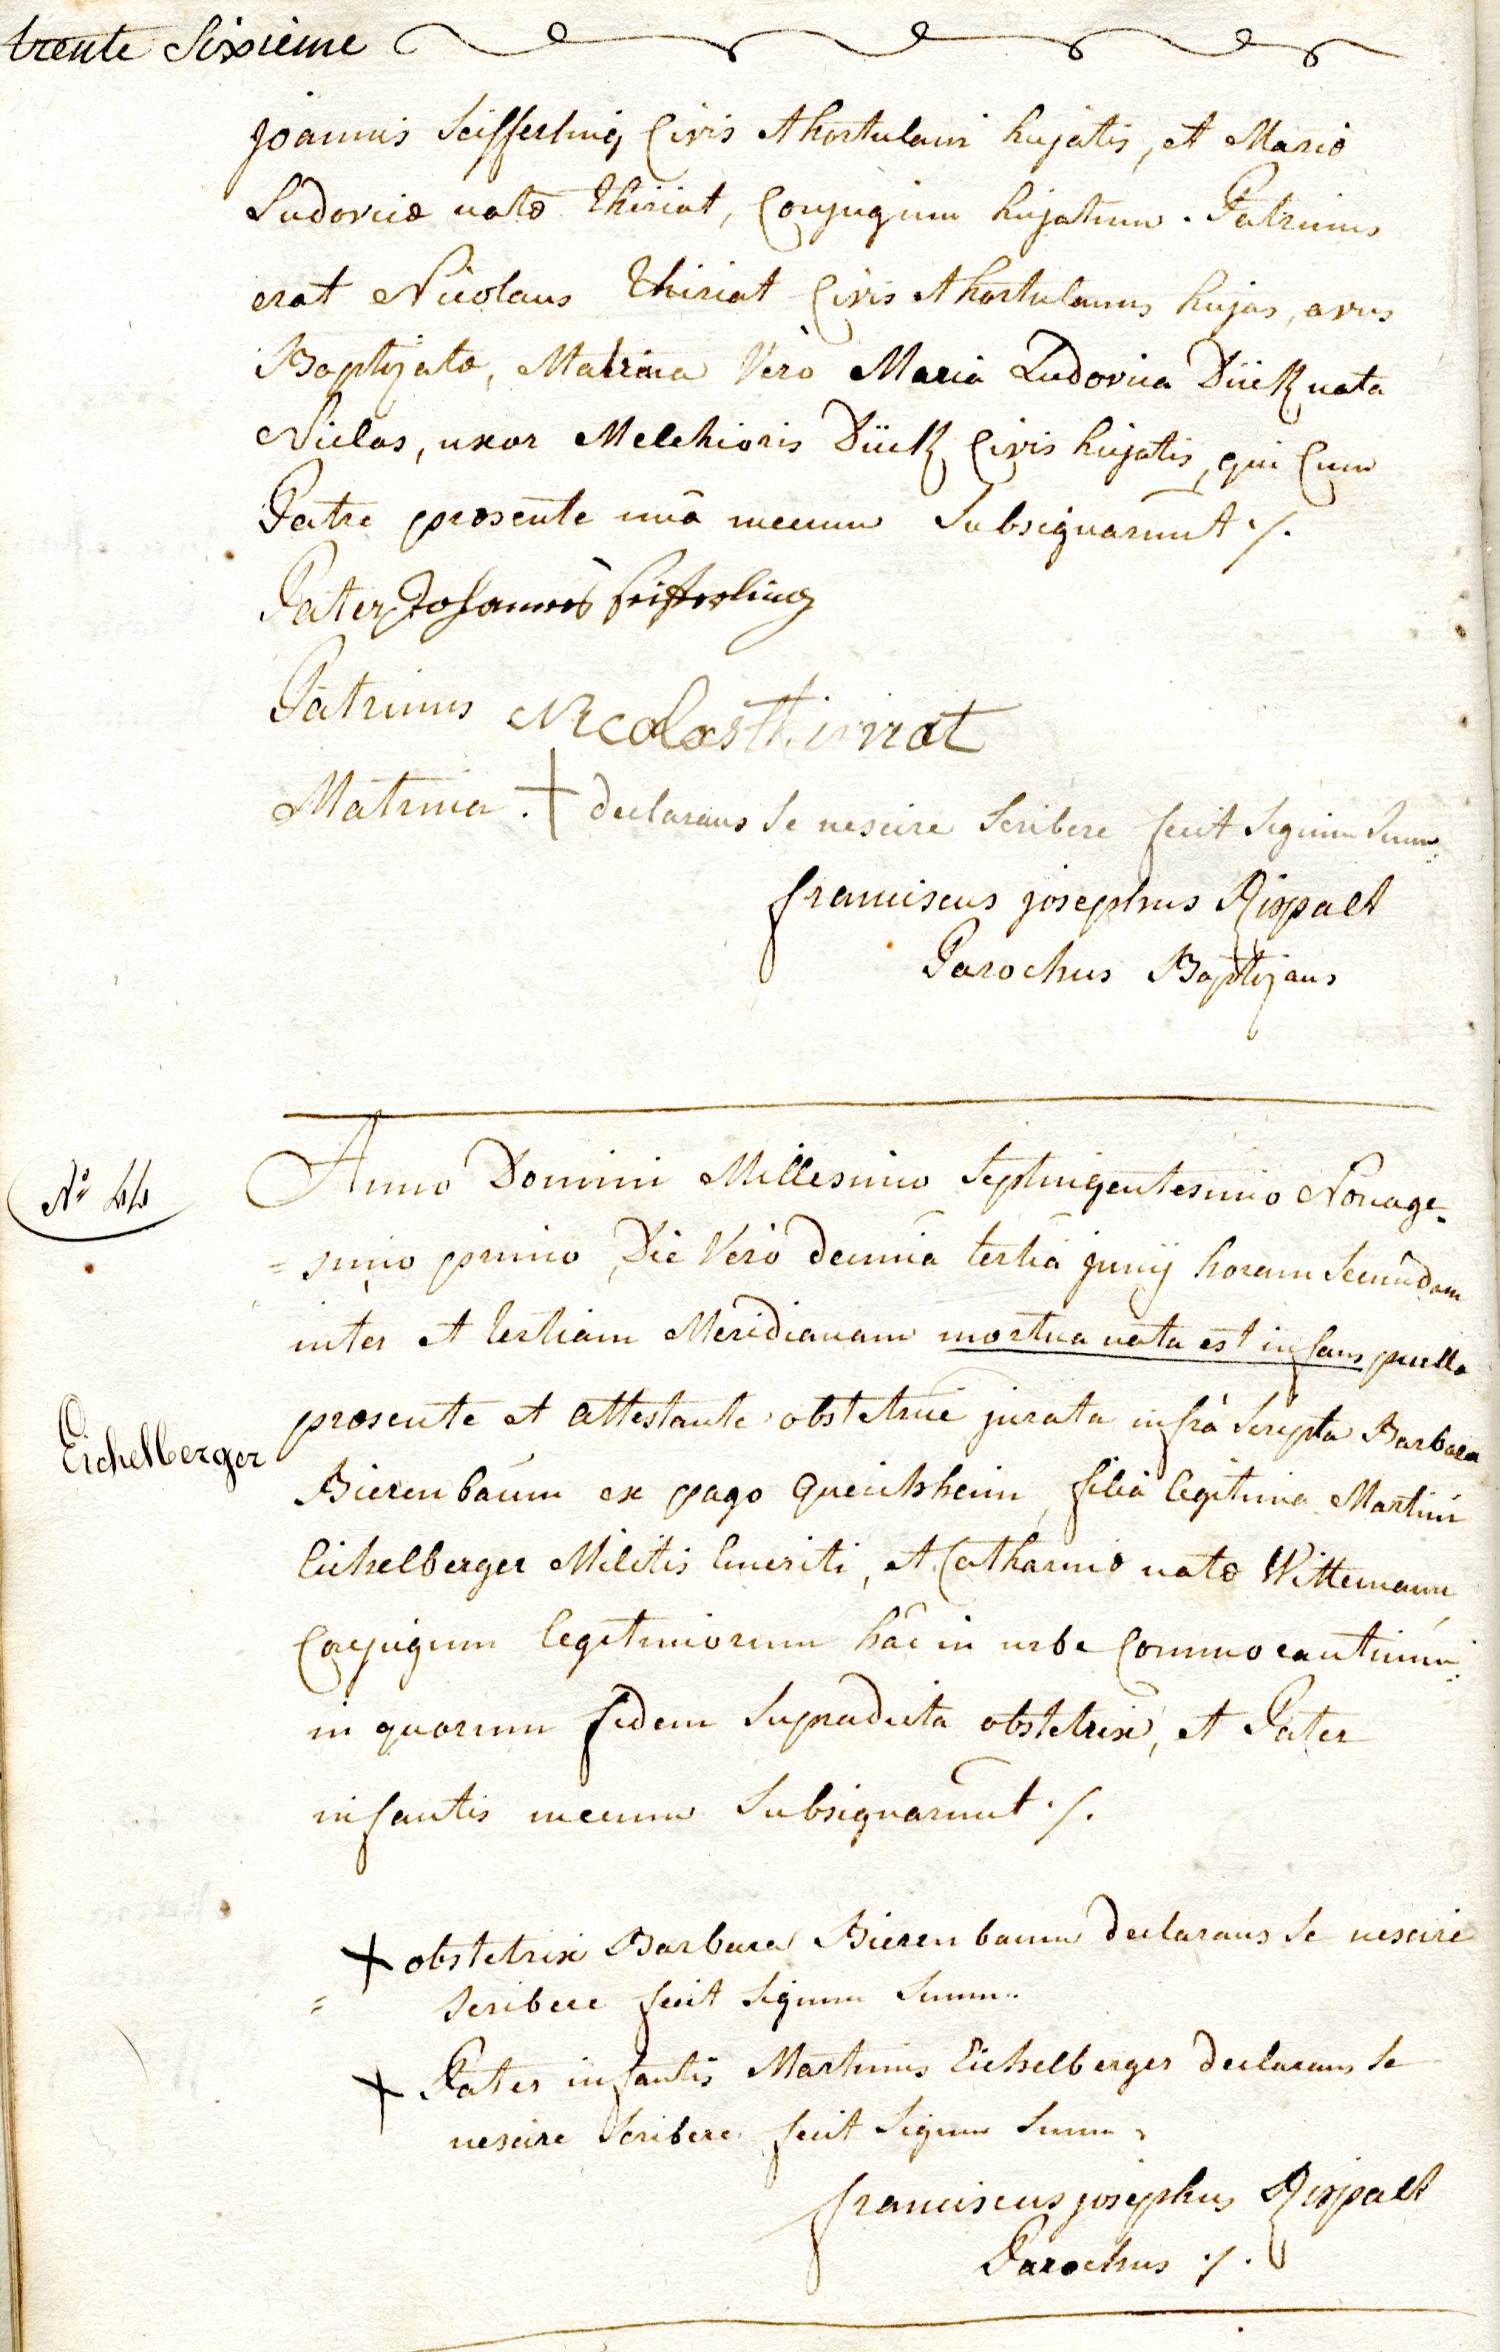 trente Sixieme
Joannis Seifferling Civis et hortulani hujatis, et Mariæ
Ludovicæ natæ Thiriat, Conjugum hujatum. Patrinus
erat Nicolaus Thiriat Civis et hortulanus hujas, avus
Baptizatæ, Matrina Vero Maria Ludovica Dück nata
Niclas, uxor Melchioris Dück Civis hujatis, qui Cum
Patre præsente unâ mecum Subsignarunt ./.
Pater Johannes Seifferling
Patrinus Nicolas thirriat
Matrina . + declarans Se nescire Scribere fecit Signum Suum.
franciscus josephus Rippalt
Parochus Baptizans
Anno Domini Millesimo Septingentesimo Nonage-
N° 44
=simo primo, Die Vero decimâ tertiâ Junij horam Secundam
inter et tertiam Meridianam mortua nata est infans puella
præsente et attestante obstetrice jurata infrà Scripta Barbara
Eichelberger
Bierenbaum ex pago Queichheim, filia legitima Martini
Eichelberger Militis Emeriti, et Catharinæ natæ Wittemann
Conjugum legitimorum hâc in urbe Commorantium.
in quorum fidem Supradicta obstetrix, et Pater
infantis mecum Subsignarunt ./.
+ obstetrix Barbara Bierenbaum declarans Se nescire
= Scribere fecit Signum Suum.
+ Pater infantis Martinus Eichelberger declarans Se
nescire Scribere fecit Signum Suum.
franciscus josephus Rippalt
Parochus ./.